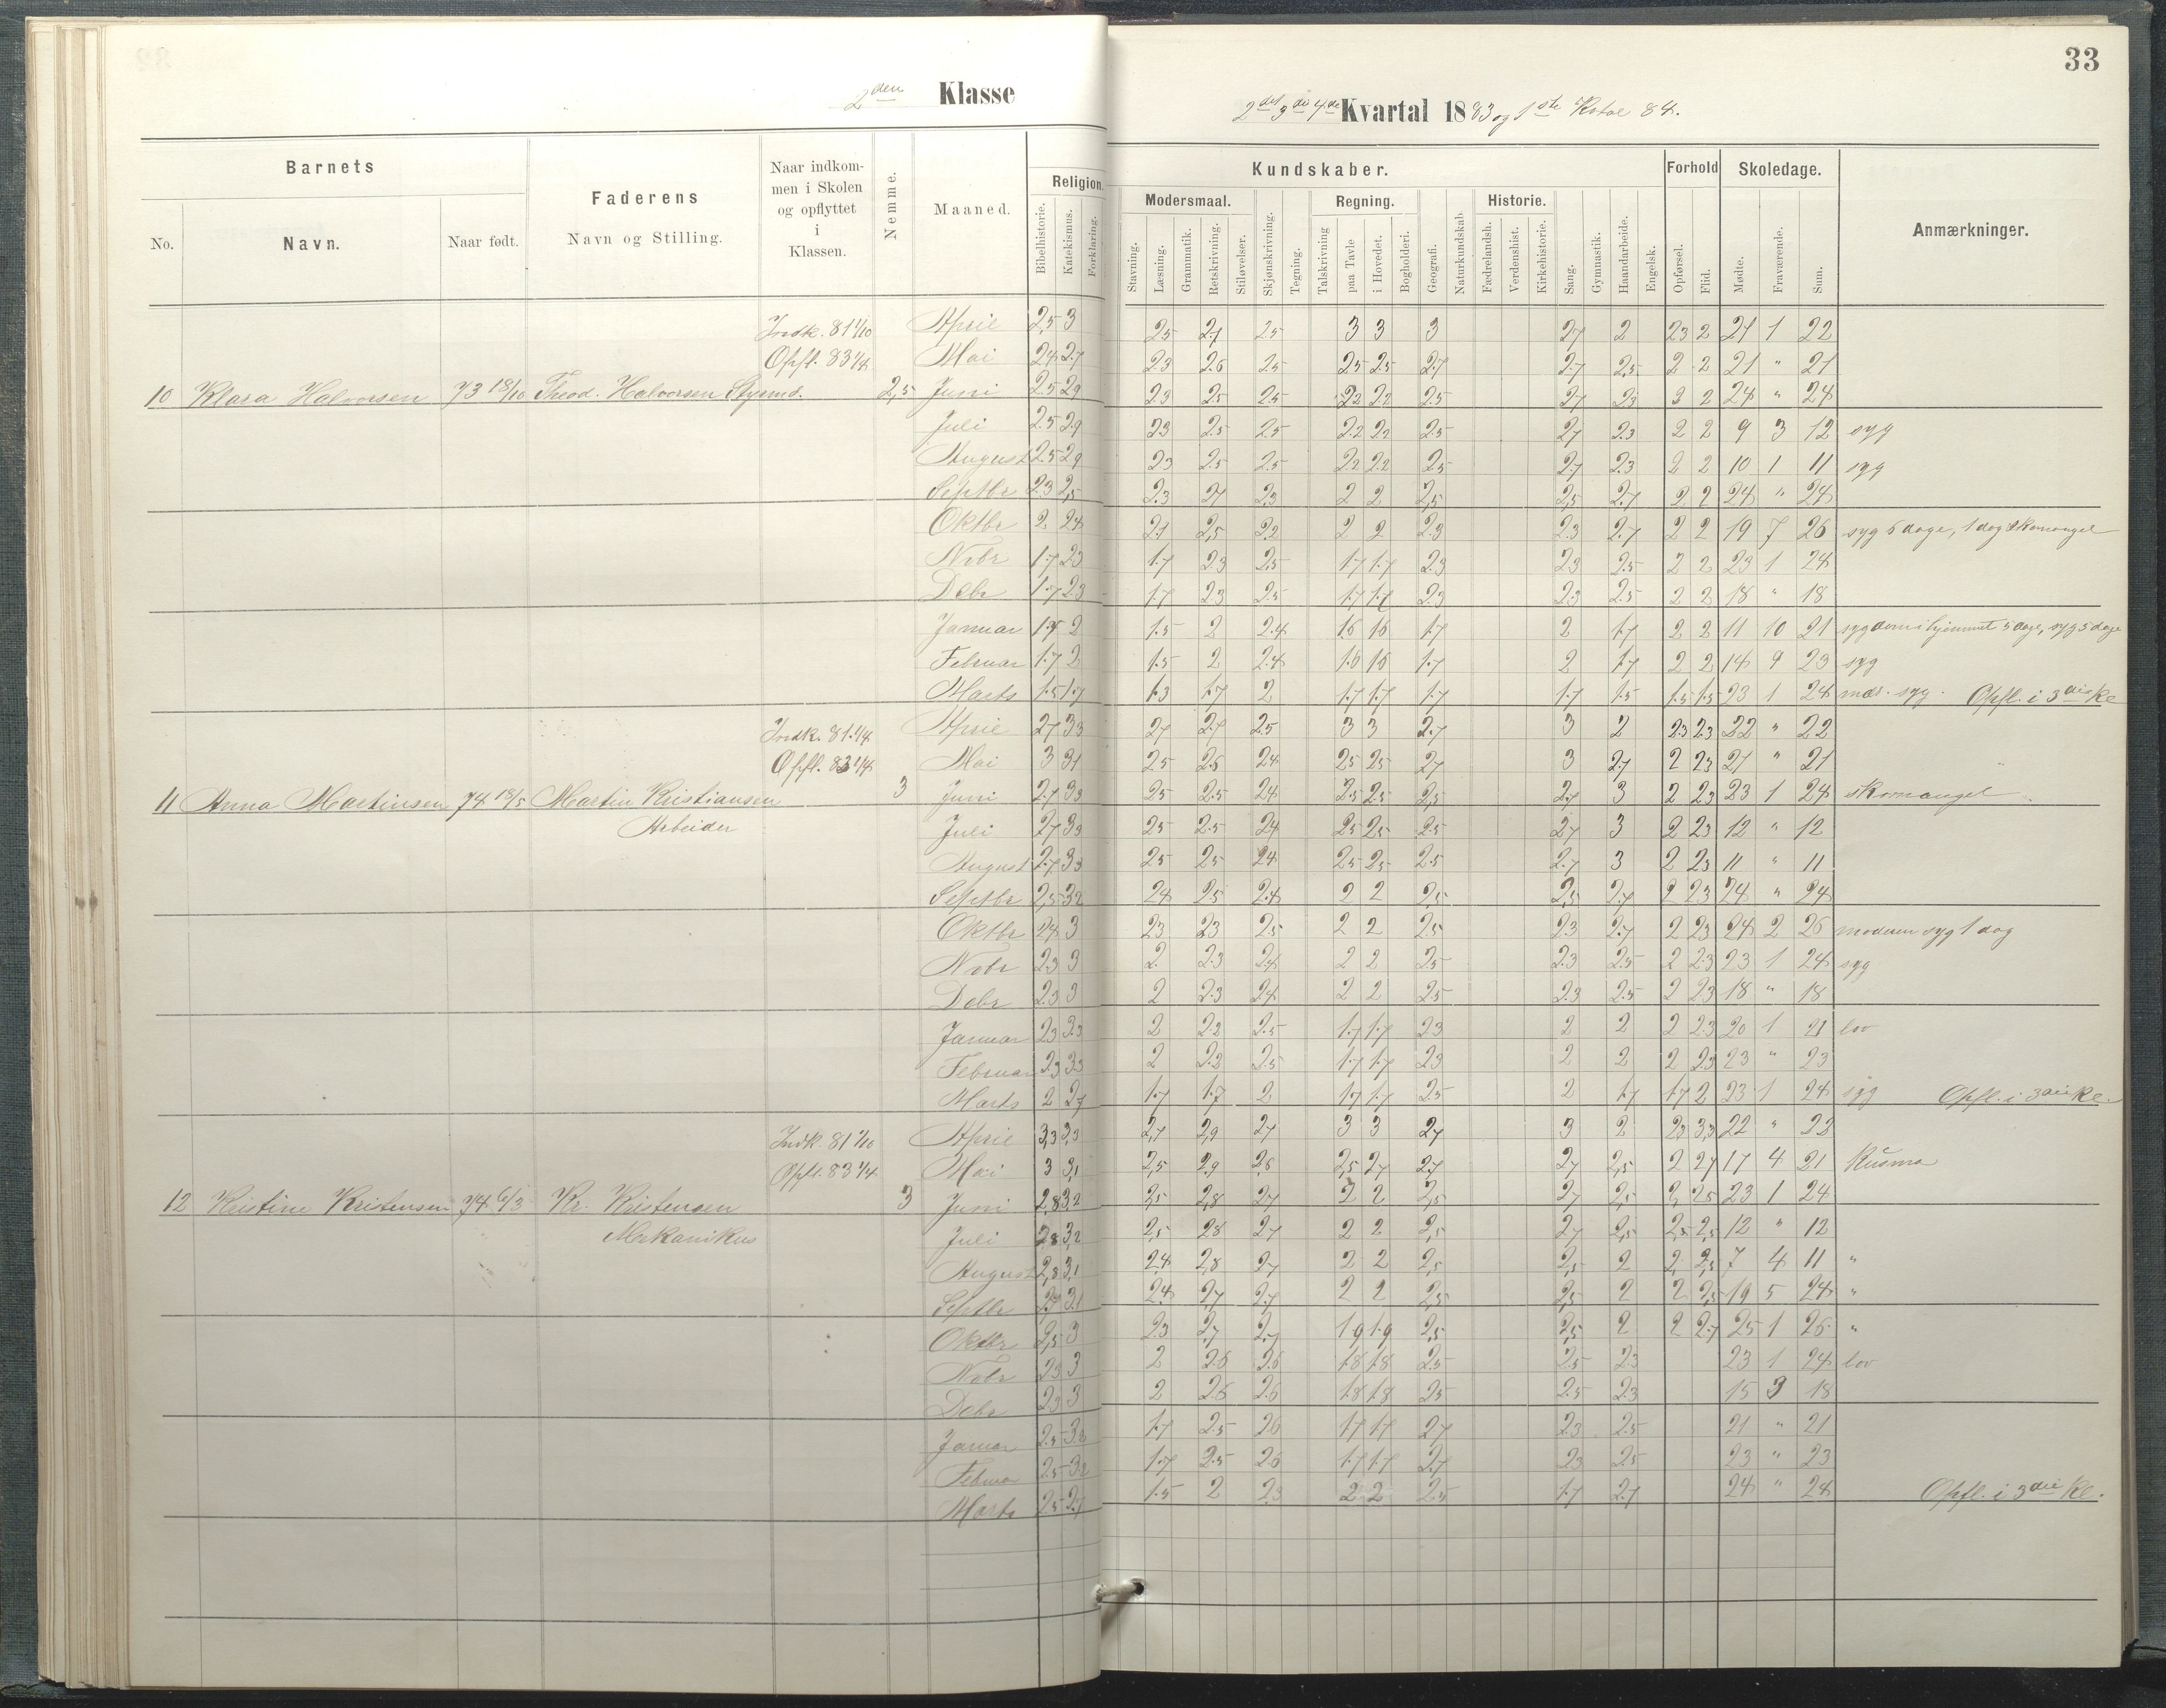 33
2den Klasse
2det 3die 4de Kvartal 1883 og 1ste Kvtal 84.
Barnets Faderens Navn og Stilling. Naar indkommen i Skolen og opflyttet i Klassen. Nemme. Maaned. Religion. Kundskaber. Forhold Skoledage. Anmærkninger.
No. Navn. Naar født. Bibelhistorie. Katekismus. Forklaring. Modersmaal. Regning. Historie.
Stavning. Læsning. Grammatik. Retskrivning. Stiløvelser. Skjønskrivning. Tegning. Talskrivning paa Tavle i Hovedet. Bogholderi. Geografi. Naturkundskab. Fædrelandsh. Verdenshist. Kirkehistorie. Sang. Gymnastik. Haandarbeide. Engelsk. Opførsel. Flid. Mødte. Fraværende. Sum.
Indk. 81 1/10 April 2,5 3 2.5 2.7 2.5 3 3 3 2.7 2 2.3 2 21 1 22
Opfl. 83 1/4 Mai 2.4 2.7 2.3 2.6 2.5 2.5 2.5 2.7 2.7 2,5 2 2 21 " 21
10 Klara Halvorsen 73 18/10 Theod. Halvorsen Styrmd. 2,5 Juni 2.5 2.9 2.3 2.5 2.5 2.2 2.2 2.5 2.7 2.3 2 2 24 " 24
Juli 2.5 2.9 2.3 2.5 2.5 2.2 2.2 2.5 2.7 2.3 2 2 9 3 12 syg
August 2.5 2.9 2.3 2.5 2.5 2.2 2.2 2.5 2.7 2.3 2 2 10 1 11 syg
Septbr 2.3 2,5 2.3 2.4 2.3 2 2 2,5 2,5 2.7 2 2 24 " 24
Oktbr 2 2.4 2.1 2,5 2.2 2 2 2.3 2.3 2.7 2 2 19 7 26 syg 6 dage, 1 dag skomangel
Nobr 1.7 2.3 1.7 2.3 2.5 1.7 1.7 2.3 2.3 2.5 2 2 23 1 24
Debr 1.7 2.3 1.7 2.3 2.5 1.7 1.7 2.3 2.3 2.5 2 2 18 " 18
Januar 1.7 2 1.5 2 2.4 1.6 1.6 1.7 2 1.7 2 2 11 10 21 sygdom i hjemmet 5 dage, syg 5 dage
Februar 1.7 2 1.5 2 2.4 1.6 1.6 1.7 2 1.7 2 2 14 9 23 syg
Marts 1.5 1.7 1.3 1.7 2 1.7 1.7 1.7 1.7 1.5 1.5 1.5 23 1 24 mod. syg. Opfl. i 3die Kl
Indk. 81. 1/4 April 2.7 3.3 2.7 2.7 2.5 3 3 2.7 3 2 2.3 2.3 22 " 22
Opfl. 83 1/4 Mai 3 3.1 2.5 2.6 2.4 2.5 2.5 2.7 3 2.7 2 2.3 21 " 21
11 Anna Martinsen 74 18/5 Martin Kristiansen 3 Juni 2.7 3.3 2.5 2.5 2.4 2.5 2.5 2,5 2.7 3 2 2.3 23 1 24 skomangel
Arbeider Juli 2.7 3.3 2.5 2.5 2.4 2.5 2.5 2.5 2.7 3 2 2.3 12 " 12
August 2.7 3.3 2.5 2.5 2.4 2.5 2.5 2.5 2.7 3 2 2.3 11 " 11
Septbr 2,5 3.2 2.4 2.5 2.4 2 2 2,5 2,5 2.7 2 2.3 24 " 24
Oktbr 2.4 3 2.3 2.3 2.5 2 2 2.5 2.3 2.7 2 2.3 24 2 26 moderen syg 1 dag
Nobr 2.3 3 2 2.3 2.4 2 2 2.5 2.3 2.5 2 2.3 23 1 24 syg
Debr 2.3 3 2 2.3 2.4 2 2 2.5 2.3 2.5 2 2.3 18 " 18
Januar 2.3 3.3 2 2.2 2.5 1.7 1.7 2.3 2 2 2 2.3 20 1 21 lov
Februar 2.3 3.3 2 2.2 2.5 1.7 1.7 2.3 2 2 2 2.3 23 " 23
Marts 2 2.7 1.7 1.7 2 1.7 1.7 2.5 2 1.7 1.7 2 23 1 24 syg Opfl. i 3die Kl.
Indk. 81 1/10 April 3,3 3,3 2,7 2,9 2.7 3 3 2.7 3 2 2.3 3,3 22 " 22
Opfl. 83 1/4 Mai 3 3,1 2,5 2.9 2.6 2,5 2.7 2.7 2.7 2,5 2 2.7 17 4 21
12 Kristine Kristensen 74 6/3 Kr. Kristensen 3 Juni 2,8 3,2 2,5 2,8 2.7 2 2 2,5 2.7 2,5 2 2.5 23 1 24
Mekanikus Juli 2,8 3,2 2,5 2.8 2.7 2 2 2,5 2.7 2,5 2,5 2,5 12 " 12
August 2,8 3,1 2.4 2,8 2.7 2 2 2,5 2,5 2 2 2,5 7 4 11 "
Septbr 2.7 3.1 2.4 2,7 2.7 2 2 2,5 2,5 2 2 2,5 19 5 24 "
Oktbr 2,5 3 2.3 2,7 2,7 1.9 1.9 2,5 2,5 2 2 2.7 25 1 26 "
Nobr 2.3 3 2 2.6 2.6 1.8 1.8 2.5 2.5 2.3 23 1 24 lov
Debr 2.3 3 2 2.6 2.6 1.8 1.8 2.5 2.5 2.3 15 3 18
Januar 2.5 3.2 1.7 2.5 2.6 1.7 1.7 2.7 2.3 2.5 21 " 21
Februar 2.5 3.2 1.7 2.5 2.6 1.7 1.7 2.7 2.3 2.5 23 " 23
Marts 2.5 2.7 1.5 2 2.3 2 2 2.5 1.7 2.7 24 " 24 Opfl. i 3die Kl.